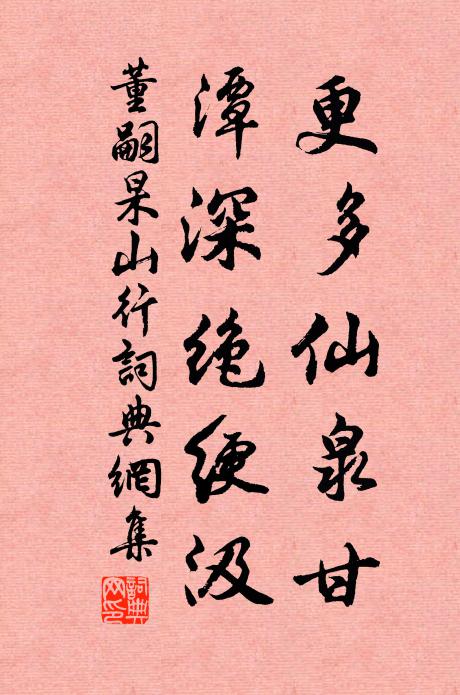 更多仙泉甘
潭深绝绠汲
董嗣杲山行詞典網集
詞典网印